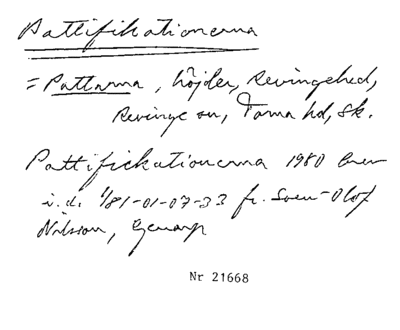 Pattifikationerna
= Pattarna, höjder, Revingehed,
Revinge sn, Torna hd, Sk.
Pattifickationerna 1980 brev
i.d. 481-01-07-33 fr. Sven-Olof
Nilsson, Genarp
Nr 21668